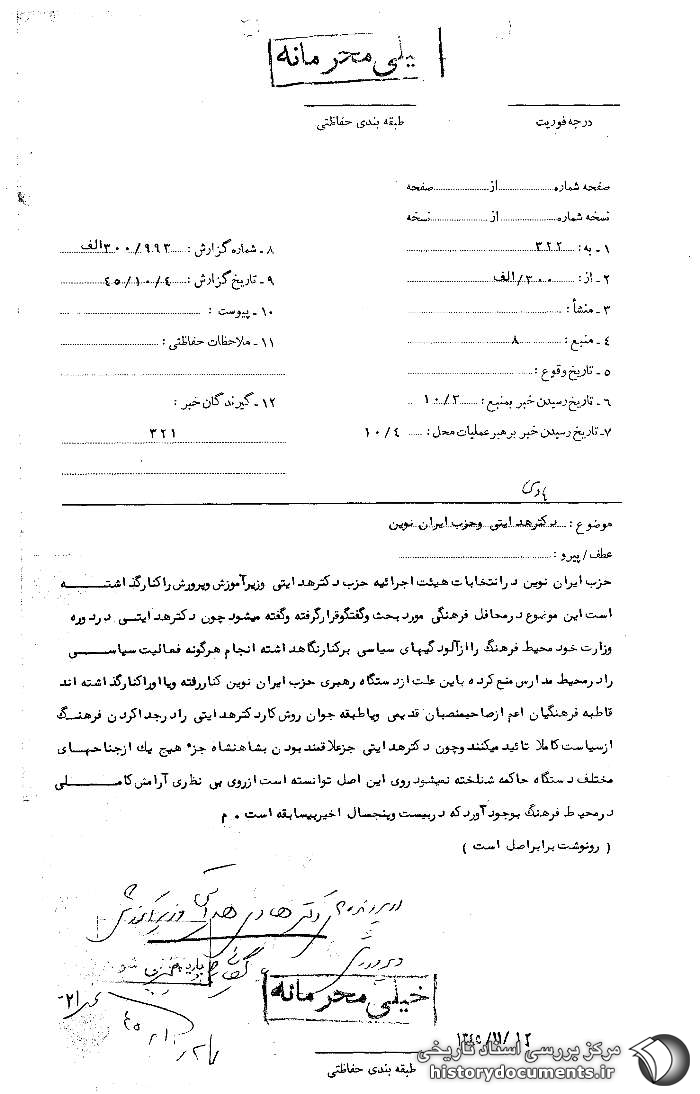 یلی محرمانه
درجه فوریت
طبقه بندی حفاظتی
صفحه شماره ............ از ............ صفحه
نسخه شماره ............ از ............ نسخه
۱ - به : ۳۲۲
۲ - از : ۳۰۰/الف
۳ - منشأ :
۴ - منبع : ۸
۵ - تاریخ وقوع :
۶ - تاریخ رسیدن خبر بمنبع : ۱۰/۳
۷ - تاریخ رسیدن خبر برهبر عملیات محل : ۱۰/۴
۸ - شماره گزارش : ۳۰۰/۹۹۳ الف
۹ - تاریخ گزارش : ۴۵/۱۰/۴
۱۰ - پیوست :
۱۱ - ملاحظات حفاظتی :
۱۲ - گیرندگان خبر :
۳۲۱
هادی
موضوع : دکتر هدایتی وحزب ایران نوین
عطف / پیرو :
حزب ایران نوین در انتخابات هیئت اجرائیه حزب دکتر هدایتی وزیر آموزش وپرورش را کنار گذاشته
است این موضوع در محافل فرهنگی مورد بحث وگفتگو قرار گرفته وگفته میشود چون دکتر هدایتی در دوره
وزارت خود محیط فرهنگ را از آلودگیهای سیاسی برکنار نگاهداشته انجام هرگونه فعالیت سیاسی
را در محیط مدارس منع کرده باین علت از دستگاه رهبری حزب ایران نوین کنار رفته ویا اورا کنار گذاشته اند
قاطبه فرهنگیان اعم از صاحبمنصبان قدیمی ویا طبقه جوان روش کار دکتر هدایتی را در جدا کردن فرهنگ
از سیاست کاملا تائید میکنند وچون دکتر هدایتی جز علاقمند بودن بشاهنشاه جزء هیچ یك از جناحهای
مختلف دستگاه حاکمه شناخته نمیشود روی این اصل توانسته است از روی بی نظری آرامش کاملی
در محیط فرهنگ بوجود آورد که در بیست وپنجسال اخیر بیسابقه است ۰ م
( رونوشت برابر اصل است )
در پرونده دکتر هادی هدایتی وزیر آموزش
و پرورش
بایگانی شود
۴۵/۱۰/۲۱
خیلی محرمانه
۱۳۴۵/۱۱/۱۲
طبقه بندی حفاظتی
مرکز بررسی اسناد تاریخی
historydocuments.ir